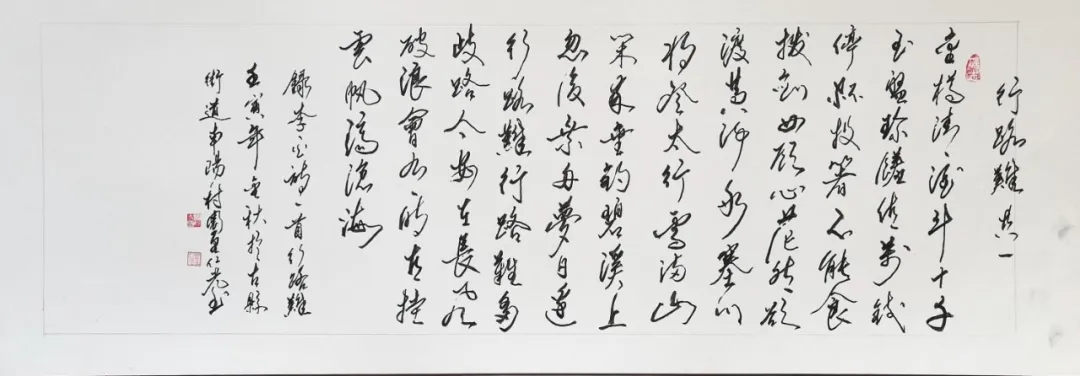 行路難 其一
金樽清酒斗十千
玉盤珍饈值萬錢
停杯投箸不能食
拔劍四顧心茫然欲
渡黃河冰塞川
將登太行雪滿山
閑來垂釣碧溪上
忽復乘舟夢日邊
行路難行路難多
歧路今安在長風
破浪會有時直挂
雲帆濟滄海
錄李白詩一首行路難
壬寅年金秋於古縣
衙道南陽村書